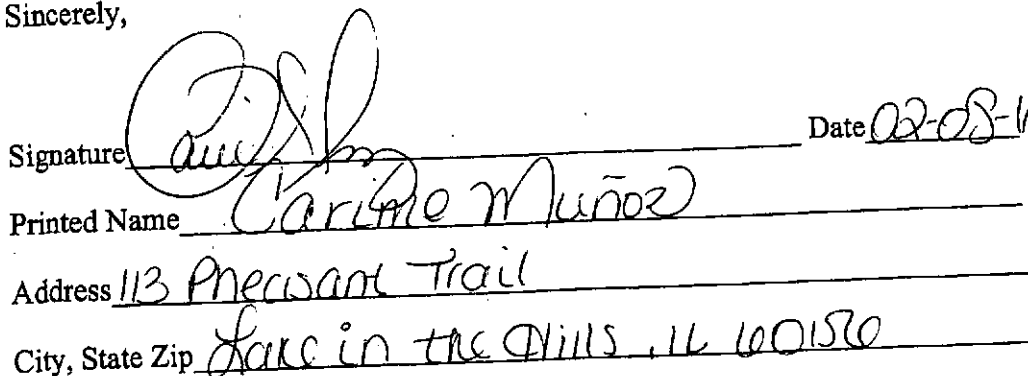 Sincerely,
Signature Date 02-08-1
Printed Name Carime Muñoz
Address 113 Pheasant Trail
City, State Zip Lake in the Hills, IL 60156